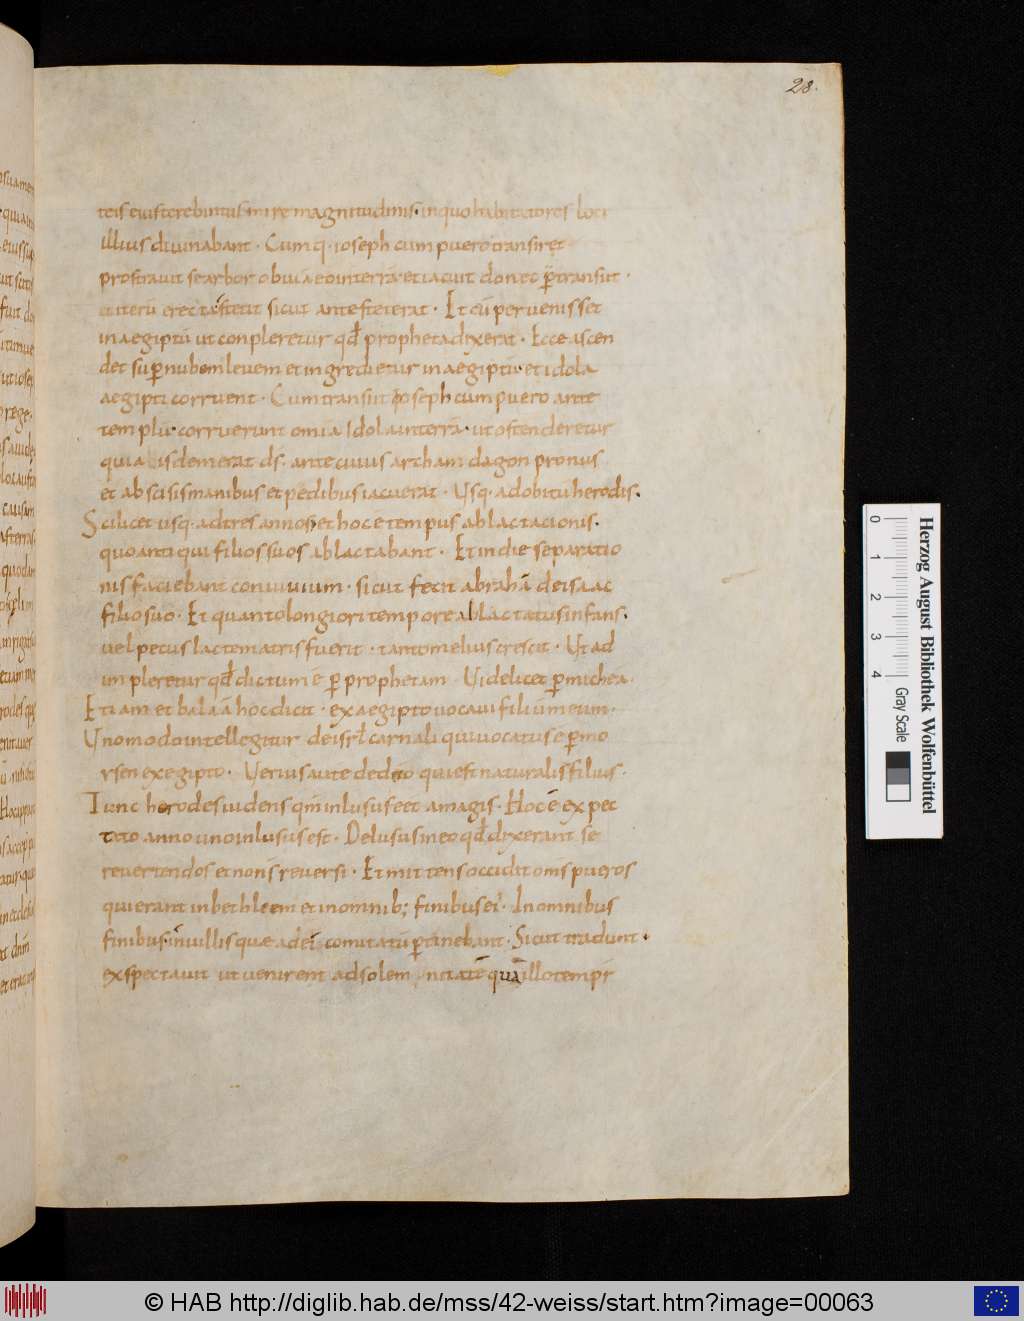 28.
teis eius terebintus mire magnitudinis · in quo habitatores loci
illius diuinabant · Cumq· ioseph cum puero transiret
prostrauit se arbor obuiā eo in terrā · et iacuit donec p̄transiit ·
et iterū erecta stetit sicut ante steterat · Et cū peruenisset
in aegiptū ut conpleretur qđ propheta dixerat · Ecce ascen
det sup nubem leuem et ingredietur in aegiptū · et idola
aegipti corruent · Cum transiit ioseph cum puero ante
templū · corruerunt omīa idola in terrā · ut ostenderetur
quia is dem erat ds̄ · ante cuius archam dagon pronus
et abscisis manibus et pedibus iacuerat · Usq· ad obitū herodis ·
Scilicet usq· ad tres annos · et hoc ē tempus ablactacionis ·
quo antiqui filios suos ablactabant · Et in die separatio
nis faciebant conuiuium · sicut fecit abrahā de isaac
filio suo · Et quanto longiori tempore ablactatus infans ·
uel pecus lactem atris fuerit · tanto melius crescit · Ut ad
impleretur qđ dictum ē p prophetam · Uidelicet p michea ·
Etiam et balaā hoc dicit · ex aegipto uocaui filium eum ·
Uno modo intellegitur de isrl carnali qui uocatus ē p mo
ysen ex egipto · Uerius autē de dn̄o qui est naturalis filius ·
Tunc herodes uidens qm̄ inlusus eet a magis · Hoc ē expec
tato anno uno inlusus est · Delusus in eo qđ dixerant se
reuertendos et non s̄ reuersi · Et mittens occidit om̄s pueros
qui erant in bethleem et in omnib; finibus ei' · In omnibus
finibus · in uillis quae ad eī comitatū ptinebant · Sicut tradunt ·
exspectauit ut uenirent ad solemnitatē quā illo tempr
0 1 2 3 4
Gray Scale
Herzog August Bibliothek Wolfenbüttel
© HAB http://diglib.hab.de/mss/42-weiss/start.htm?image=00063